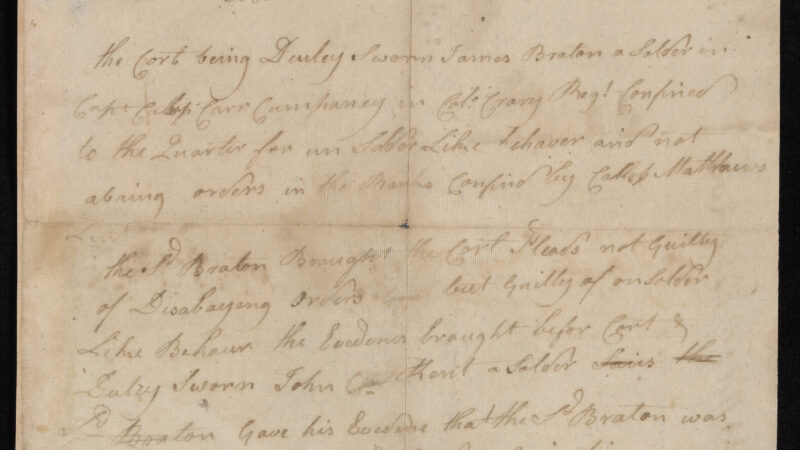 the Cort being Deuley Sworn James Braton a Solder in
Capt Calep Carr Cumpaney in Colo Crary Regt Confined
to the Quarter for un Solder Like behaver and not
abaing orders in the Ranks Confind by Calep Mathews
Lieut
the Sd Braton Braught the Cort Pleads not Guilty
of Disabayeng orders but Guilty of onsolder
Like Behaur the Evedence braught befor Cort &
Duley Sworn John Kent a Solder Saies the
Sd Braton Gave his Evedine that the Sd Braton was